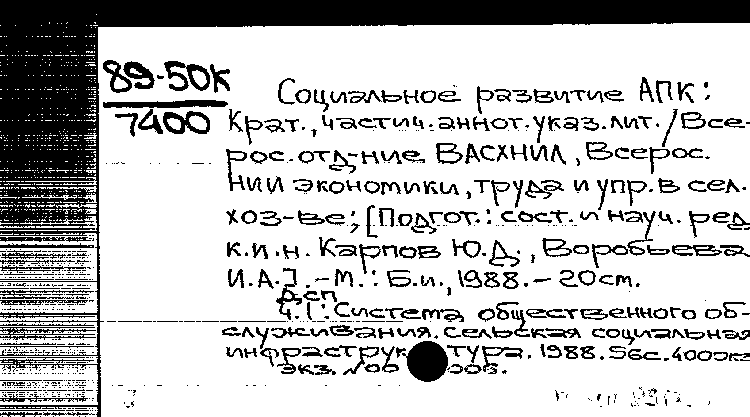 89-50К
7400
Социальное развитие АПК:
Крат., частич. аннот. указ. лит. / Все-
рос. отд-ние ВАСХНИЛ, Всерос.
НИИ экономики, труда и упр. в сел.
хоз-ве; [Подгот.: сост. и науч. ред
к.и.н. Карпов Ю.Д., Воробьева
И.А.]. - М.: Б.и., 1988. - 20 см.
Дсп
Ч. 1: Система общественного об-
служивания. Сельская социальная
инфраструктура. 1988. 56с. 400экз
экз.